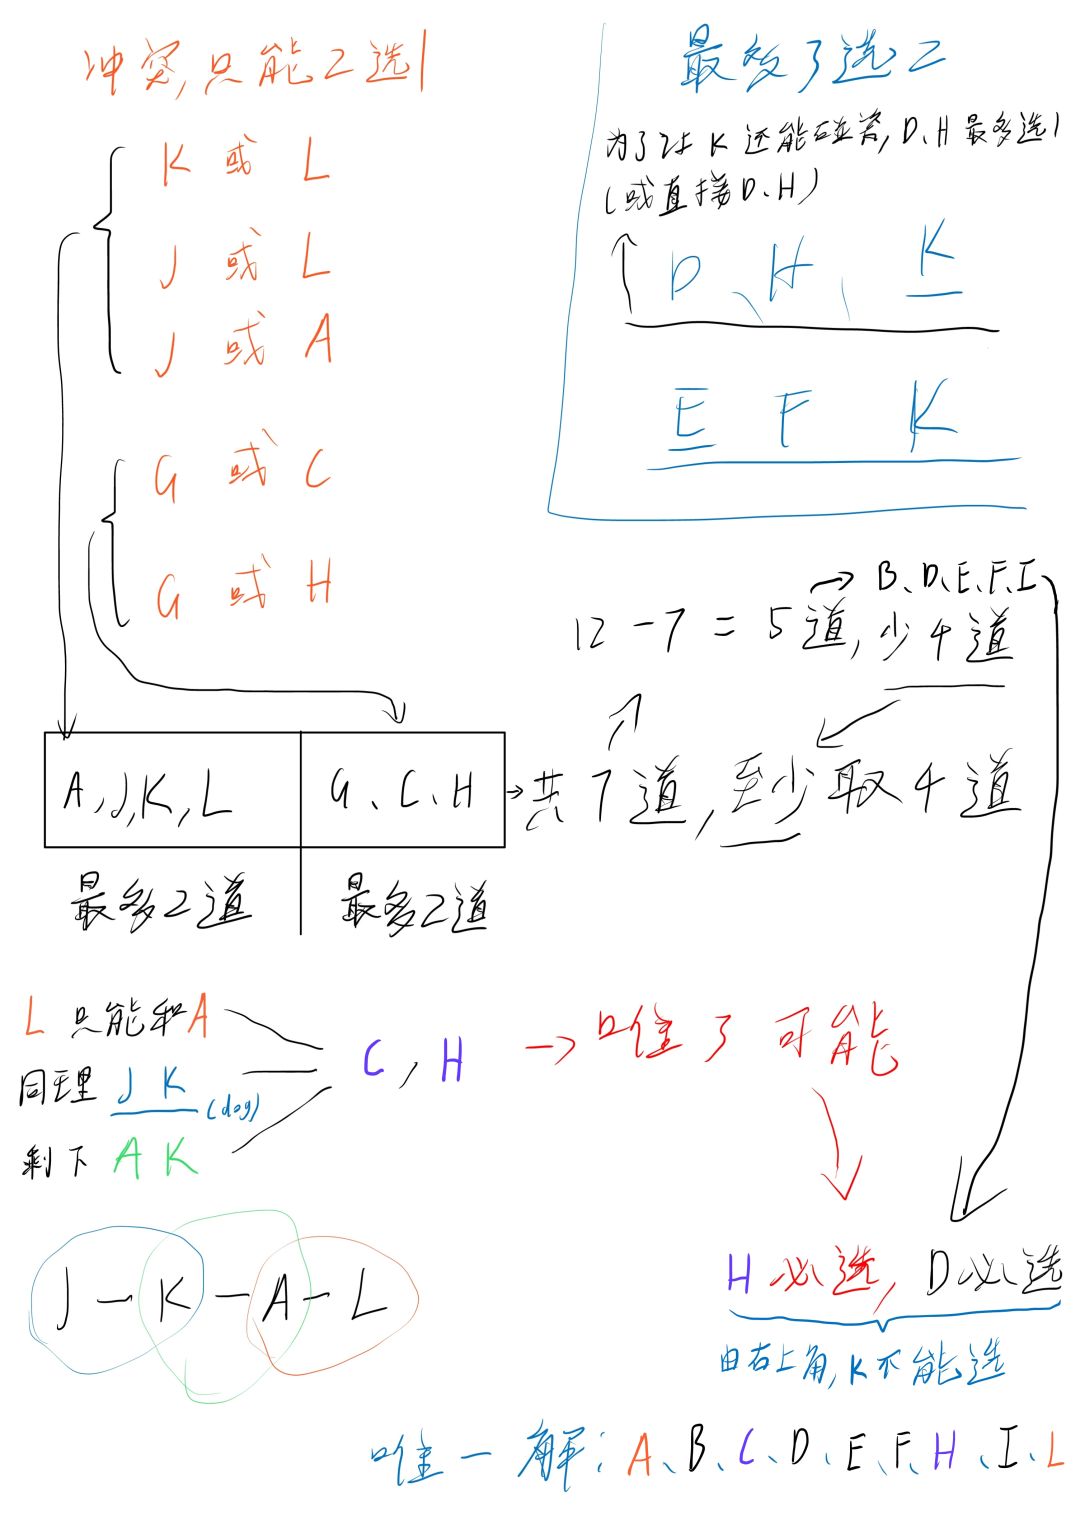 冲突,只能2选1
K 或 L
J 或 L
J 或 A
G 或 C
G 或 H
最多3选2
为了让 K 还能碰瓷, D、H 最多选1
(或直接 D、H)
D、H、K
E F K
→ B、D、E、F、I
12 - 7 = 5道, 少4道
A,J,K,L
G、C、H
→共7道,至少取4道
最多2道
最多2道
L 只能和A
同理 J K (dog)
剩下 A K
C, H → 唯3可能
J - K - A - L
H必选, D必选
由右上角,K不能选
唯一解: A、B、C、D、E、F、H、I、L